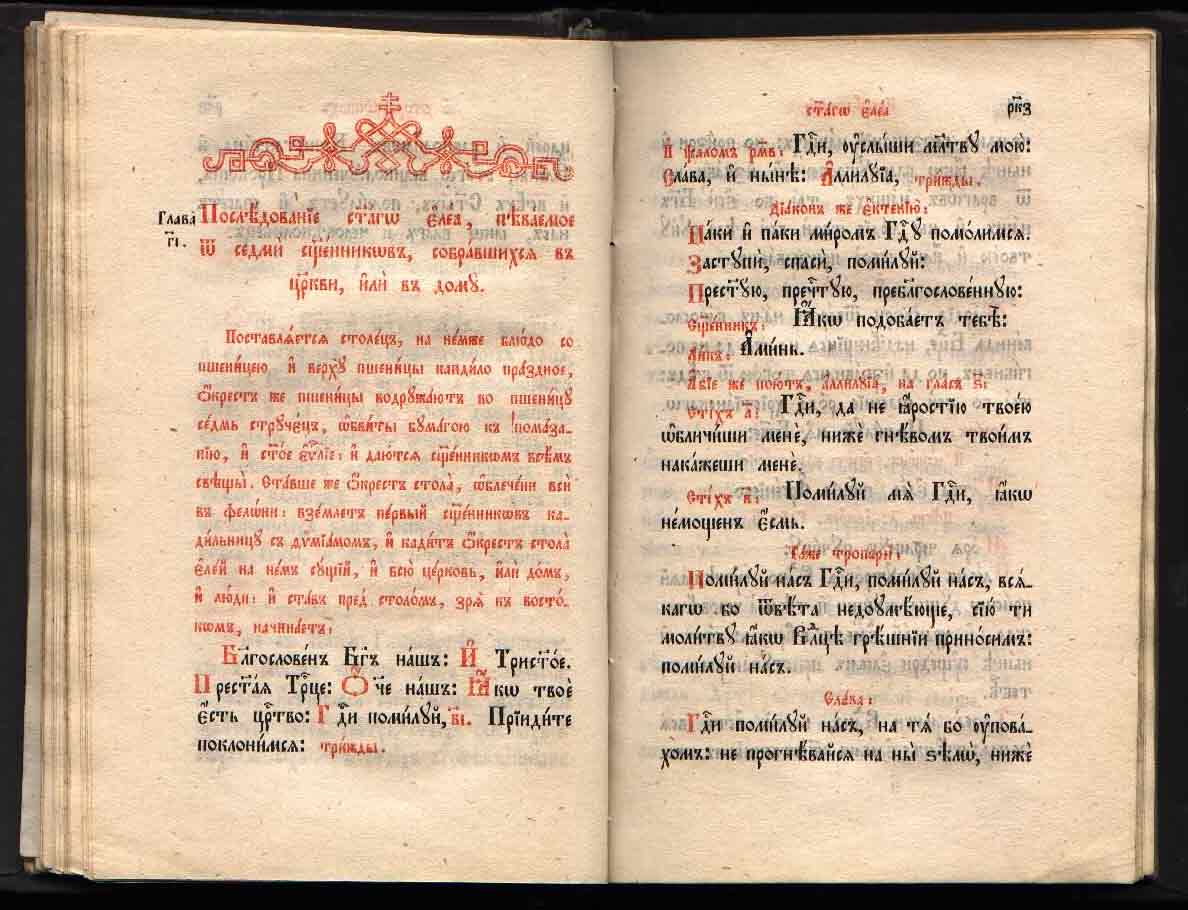 Глава
г҃і.
Послѣ́дованїе ст҃а́гѡ є҆ле́а, пѣва́емое
ѿ седми́ сщ҃е́нникѡвъ, собра́вшихсѧ въ
цр҃кви, и҆лѝ въ домꙋ̀.
Поставлѧ́етсѧ столе́цъ, на не́мже блю́до со
пшени́цею, и҆ верхꙋ̀ пшени́цы канди́ло пра́здное,
ѻ҆́крестъ же пшени́цы водрꙋжа́ютъ во пшени́цꙋ
се́дмь стрꙋче́цъ, ѡ҆бви́ты бꙋма́гою къ пома́за-
нїю, и҆ ст҃о́е є҆ѵⷢ҇лїе: и҆ даю́тсѧ сщ҃е́нникѡмъ всѣ̑мъ
свѣщы̀. Ста́вше же ѻ҆́крестъ стола̀, ѡ҆блече́ни всѝ
въ фелѡ́ни: взе́млетъ пе́рвый сщ҃е́нникѡвъ ка-
ди́льницꙋ съ ѳѷмїа́момъ, и҆ кади́тъ ѻ҆́крестъ стола̀
є҆ле́й на не́мъ сꙋ́щїй, и҆ всю̀ це́рковь, и҆лѝ до́мъ,
и҆ лю́ди: и҆ ста́въ пред̾ столо́мъ, зрѧ̀ къ восто́-
кѡмъ, начина́етъ:
Благослове́нъ бг҃ъ на́шъ: И҆ Трист҃о́е.
Прест҃а́ѧ трⷪ҇це: Ѻ҆́ч҃е на́шъ: Ꙗ҆́кѡ твоѐ
є҆́сть црⷭ҇тво: Гдⷭ҇и поми́лꙋй, в҃і. Прїиди́те
поклони́мсѧ: три́жды.
ст҃а́гѡ є҆ле́а
рк҃з
И҆ ѱало́мъ рм҃в: Гдⷭ҇и, ᲂу҆слы́ши мл҃твꙋ мою̀:
Сла́ва, и҆ ны́нѣ: А҆ллилꙋ́їа, три́жды.
Дїа́конъ же є҆ктенїю̀:
Па́ки и҆ па́ки ми́ромъ гдⷭ҇ꙋ помо́лимсѧ.
Застꙋпѝ, спасѝ, поми́лꙋй:
Прест҃ꙋ́ю, пречⷭ҇тꙋю, пребл҃гослове́ннꙋю:
Сщ҃е́нникъ: Ꙗ҆́кѡ подоба́етъ тебѣ̀:
Ли́къ: А҆ми́нь.
А҆́бїе же пою́тъ, а҆ллилꙋ́їа, на гла́съ ѕ҃:
Сті́хъ а҃: Гдⷭ҇и, да не ꙗ҆́ростїю твое́ю
ѡ҆бличи́ши менѐ, нижѐ гнѣ́вомъ твои́мъ
нака́жеши менѐ.
Сті́хъ в҃: Поми́лꙋй мѧ̀ гдⷭ҇и, ꙗ҆́кѡ
не́мощенъ є҆́смь.
Та́же тропарѝ:
Поми́лꙋй на́съ гдⷭ҇и, поми́лꙋй на́съ, всѧ́-
кагѡ бо ѿвѣ́та недоꙋмѣ́юще, сїю́ ти
моли́твꙋ ꙗ҆́кѡ влⷣцѣ грѣ́шнїи прино́симъ:
поми́лꙋй на́съ.
Сла́ва:
Гдⷭ҇и поми́лꙋй на́съ, на тѧ́ бо ᲂу҆пова́-
хомъ: не прогнѣ́вайсѧ на ны̀ ѕѣлѡ̀, нижѐ